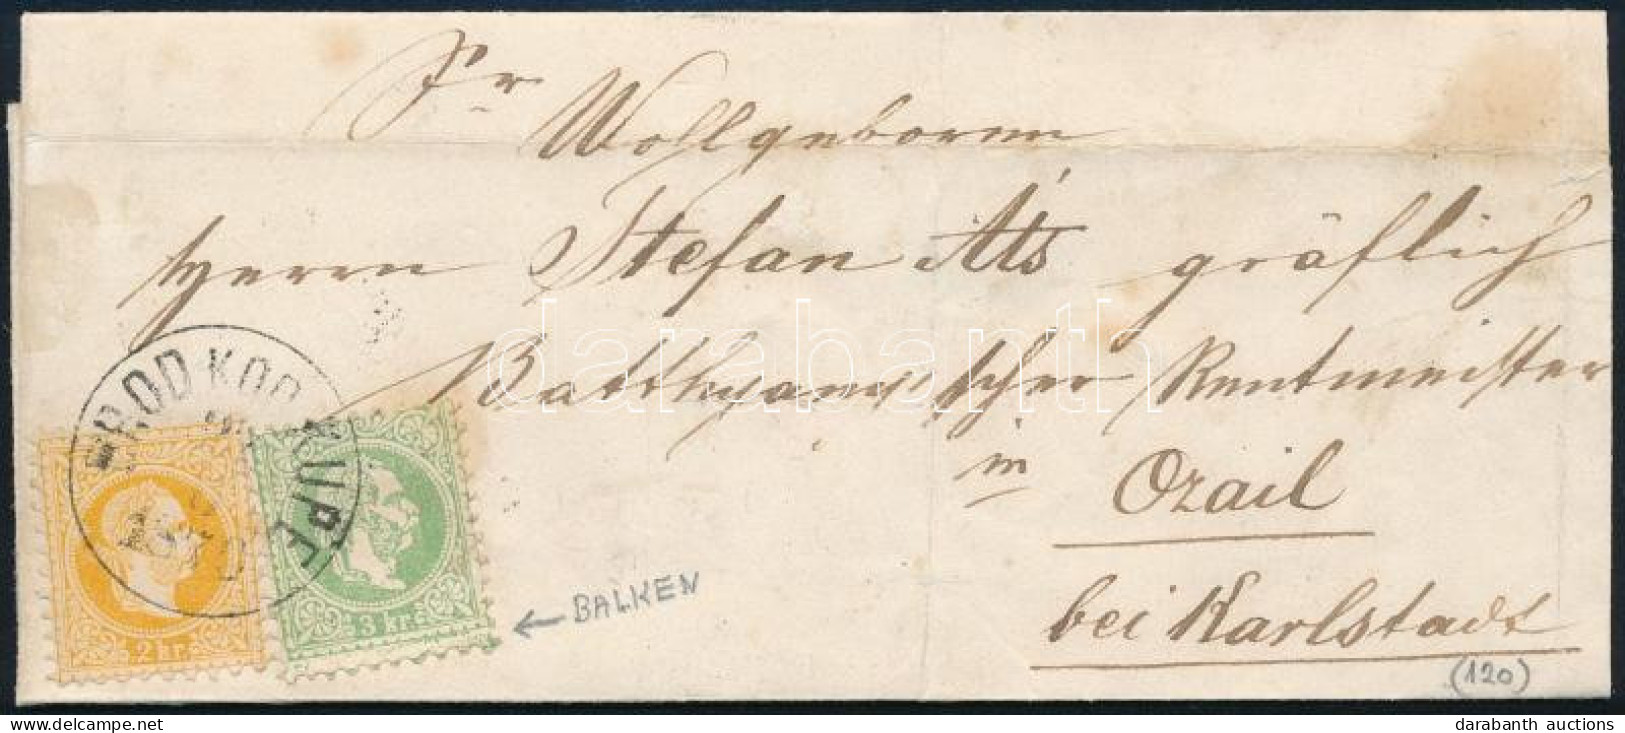 Sr
Wollgeborenn
Herrn Stefan Áts gräflich
Batthyani'scher Rentmeister
in Ozail
bei Karlstadt
BROD KOR KUPF
2 kr.
3 kr.
← BALKEN
(120)
darabanth
darabanth auctions